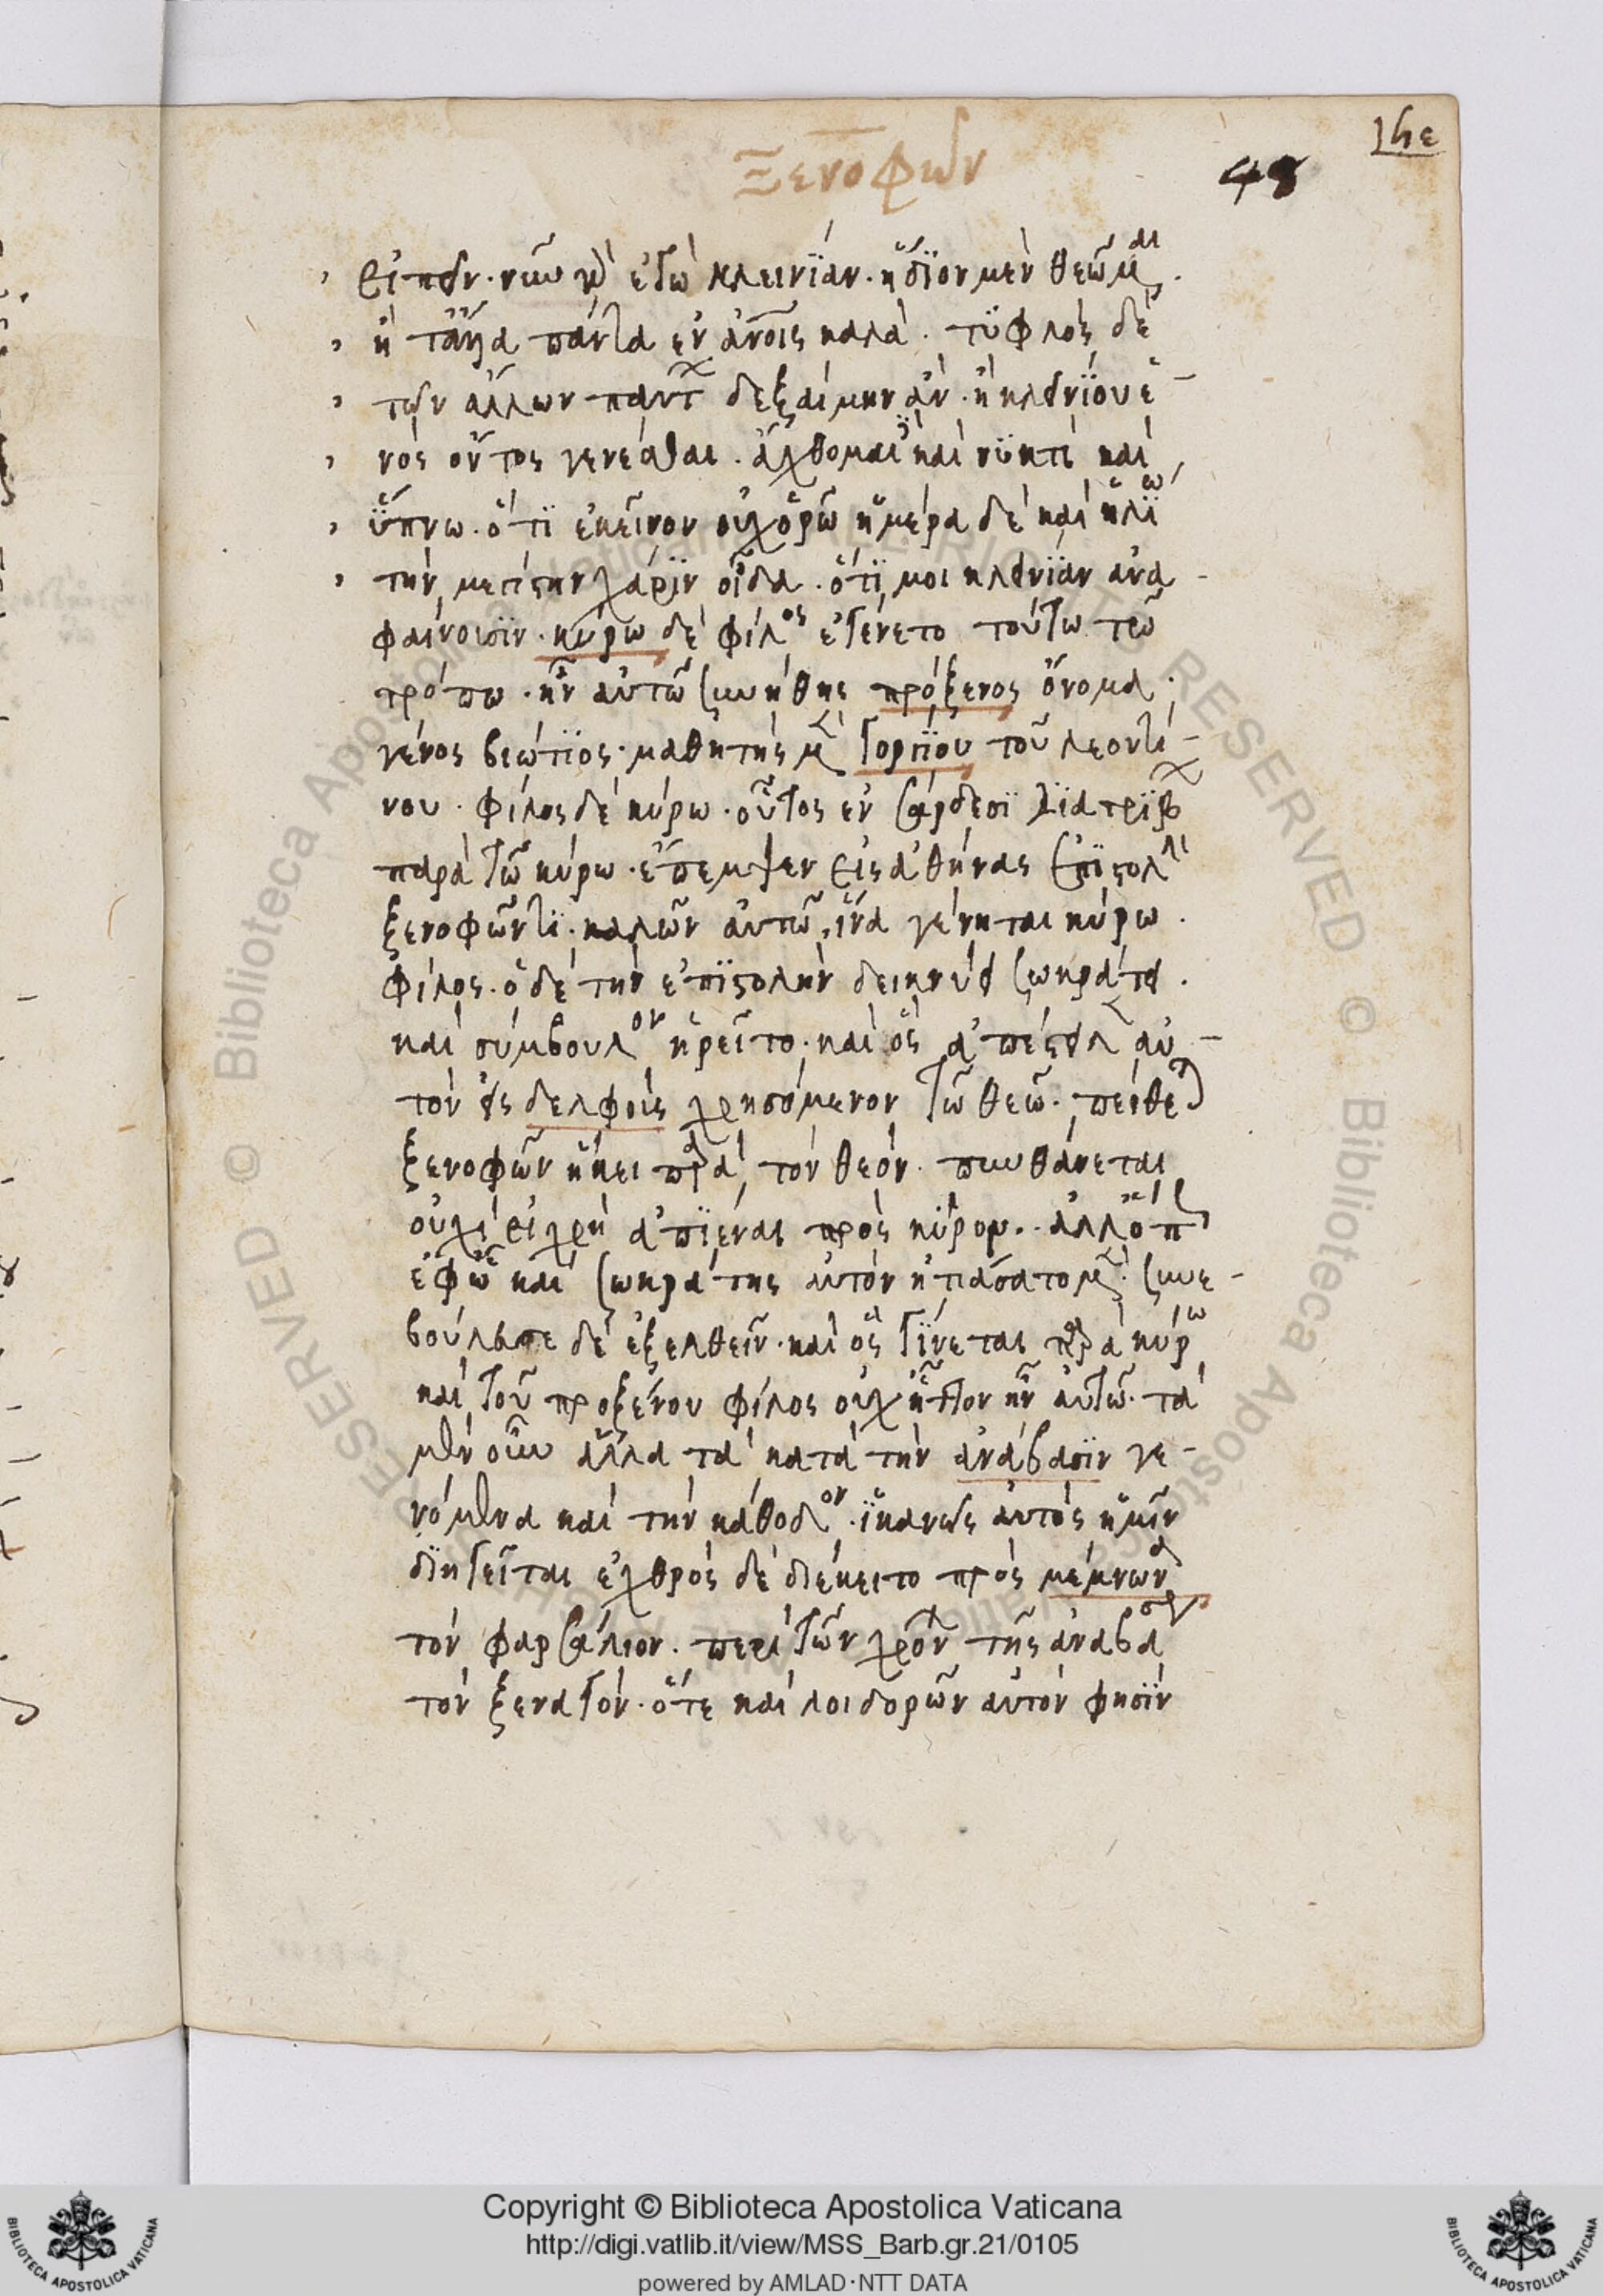 Ξενοφῶν
48
εἰπεῖν· νῦν γὰρ ἐγὼ κλεινίαν· ἥδϊον μὲν θεῶμαι·
ἢ τἄλλα πάντα ἐν ἀνοις καλά· τϋφλὸς δὲ
τῶν ἄλλων πάντ δεξαίμην ἂν· ἢ κλεινΐου ἑ-
νὸς ὄντος γενέσθαι· ἄχθομαι καὶ νϋκτὶ καὶ
ΰπνω· ὅτϊ ἐκεῖνον οὐχ ὁρῶ ἡμέρα δὲ καὶ ἡλΐω
τὴν μεγίστην χάρϊν οἶδα· ὅτϊ μοι κλεινΐαν ἀνα-
φαίνουσϊν· κύρω δὲ φίλος ἐγένετο τούτω τῶ
τρόπω· ἦν αὐτῶ συνήθης πρόξενος ὄνομα·
γένος βιώτϊος· μαθητὴς μὲν Γοργΐου τοῦ λεοντί-
νου· φίλος δὲ κύρω· οὗτος ἐν σάρδεσϊ δϊατρΐβ
παρὰ τῶ κύρω· ἔπεμψεν εἰς ἀθήνας ἐπϊστολὴ
ξενοφῶντϊ· καλῶν αὐτῶ, ἵνα γένηται κύρω·
φίλος· ὁ δὲ τὴν ἐπϊστολὴν δεικνύει σωκράτει·
καὶ σύμβουλον ἡρεῖτο· καὶ ὃς ἀπέστειλ αὐ-
τὸν εἰς δελφοὺς χρησόμενον τῶ θεῶ· πείθεται
ξενοφῶν ἥκει παρὰ τὸν θεόν· πυνθάνεται
οὐχὶ εἰ χρὴ ἀπϊέναι πρὸς κῦρον·· ἀλλ' ὅπως
ἐφ' ὧ καὶ σωκράτης αὐτὸν ἠτιάσατο μὲν· συνε-
βούλευσε δὲ ἐξελθεῖν· καὶ ὃς γΐνεται παρὰ κύρω
καὶ τοῦ προξένου φίλος οὐχ ἧττον ἦν αὐτῶ· τὰ
μὲν οὖν ἄλλα τὰ κατὰ τὴν ἀνάβασϊν γε-
νόμενα καὶ τὴν κάθοδον· ἱκανῶς αὐτὸς ἡμῖν
δϊηγεῖται ἐχθρὸς δὲ διέκειτο πρὸς μέμνωνα
τὸν φαρσάλιον· περὶ τῶν χρόν τῆς ἀναβάσεως
τὸν ξεναγόν· ὅτε καὶ λοιδορῶν αὐτὸν φησϊν
Copyright © Biblioteca Apostolica Vaticana
http://digi.vatlib.it/view/MSS_Barb.gr.21/0105
powered by AMLAD·NTT DATA